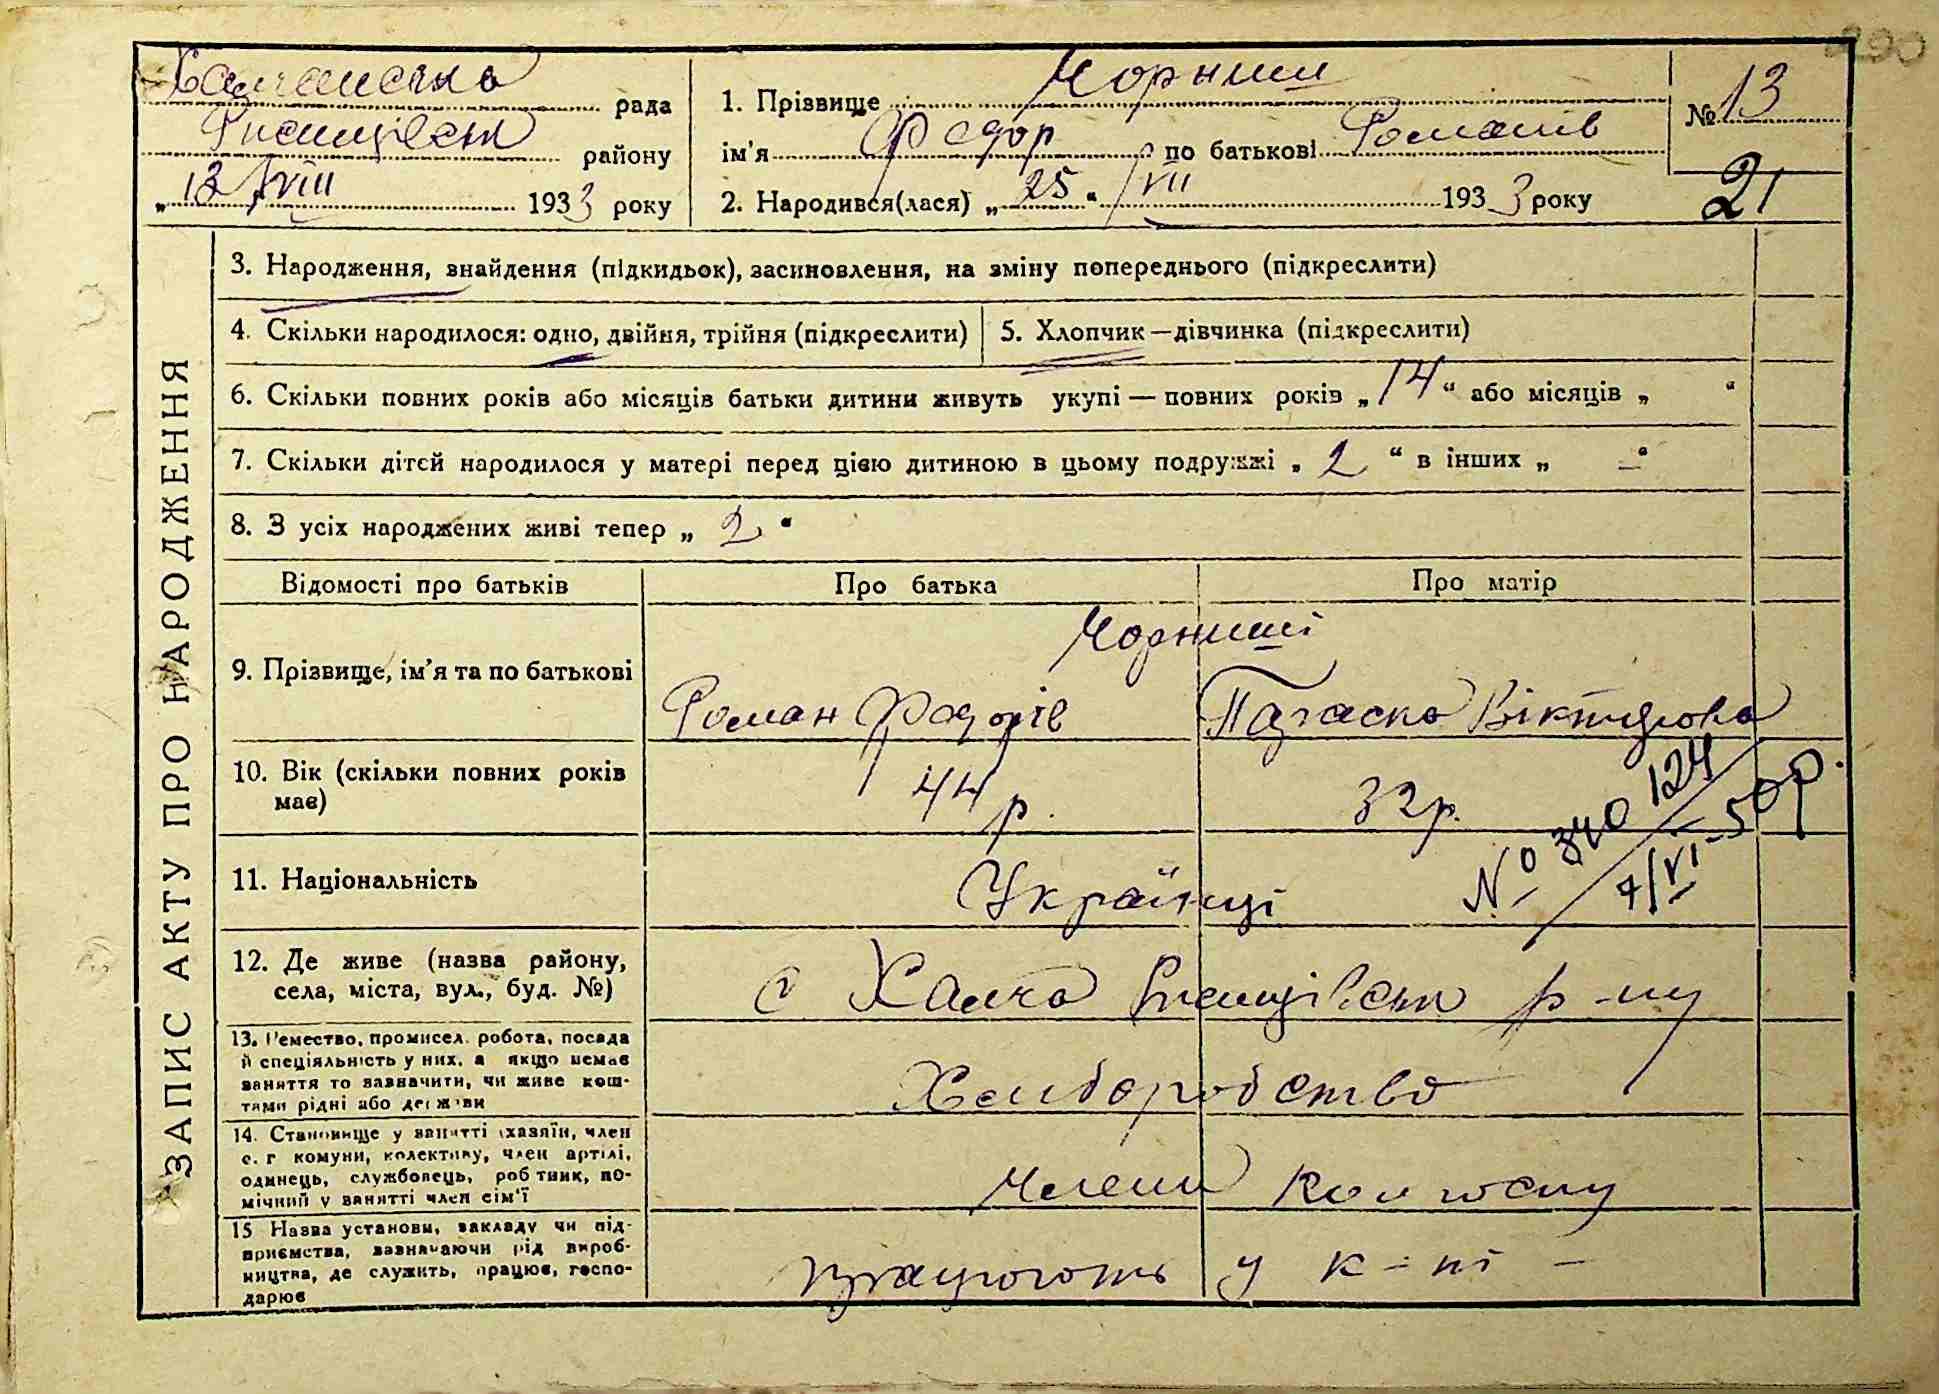 290
Халчанська рада
району
„13 / VIII 1933 року
1. Прізвище Чорниш
ім'я Федор по батькові Романів
2. Народився(лася) „25“ / VII 1933 року
№ 13
21
ЗАПИС АКТУ ПРО НАРОДЖЕННЯ
3. Народження, знайдення (підкидьок), засиновлення, на зміну попереднього (підкреслити)
4. Скільки народилося: одно, двійня, трійня (підкреслити)
5. Хлопчик — дівчинка (підкреслити)
6. Скільки повних років або місяців батьки дитини живуть укупі — повних років „14“ або місяців „ “
7. Скільки дітей народилося у матері перед цією дитиною в цьому подружжі „2“ в інших „–“
8. З усіх народжених живі тепер „2“
Відомості про батьків Про батька Про матір
9. Прізвище, ім'я та по батькові
Чорниші
Роман Федорів Параска Вікторова
10. Вік (скільки повних років має)
44 р. 32 р.
№ 340 124
4/VI-50 р.
11. Національність
Українці
12. Де живе (назва району,
села, міста, вул., буд. №)
с Халча р-ну
13. Ремество, промисел. робота, посада
й спеціяльність у них, а якщо немає
заняття то зазначити, чи живе кош-
тами рідні або держави
Хліборобство
14. Становище у занятті (хазяїн, член
с. г комуни, колективу, член артілі,
одинець, службовець, робітник, по-
мічний у занятті член сім'ї
Члени колгоспу
15 Назва установи, закладу чи під-
приємства, зазначаючи рід вироб-
ництва, де служить, працює, госпо-
дарює
працюють у к-пі –